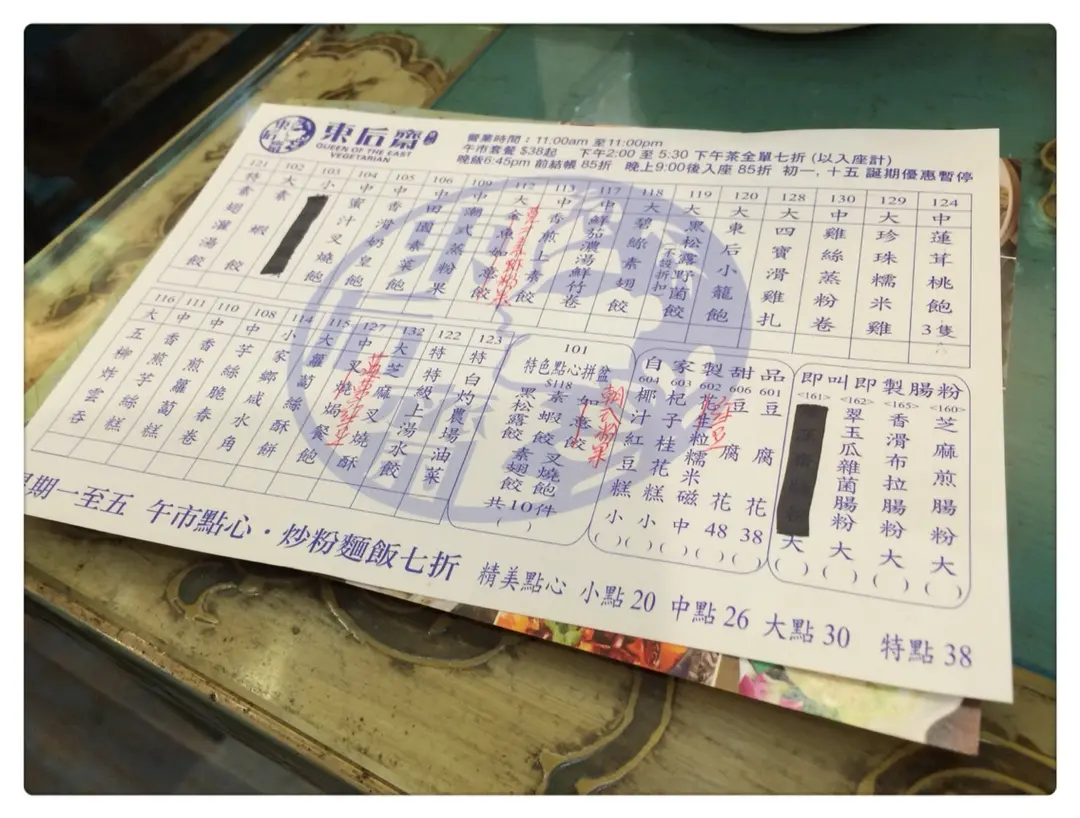 東后齋
QUEEN OF THE EAST
VEGETARIAN
營業時間：11:00am 至11:00pm
午市套餐 $38起 下午2:00 至 5:30 下午茶全單七折 (以入座計)
晚飯6:45pm 前結帳 85折 晚上9:00後入座 85折 初一, 十五 誕期優惠暫停
121 特 素翅灌湯餃
102 大 素蝦餃
103 小
104 中 蜜汁叉燒飽
105 中 香滑奶皇飽
106 中 田園素菜飽
109 中 潮式蒸粉果
112 大 金魚如意餃
113 中 香煎上素餃
117 中 鮮茄濃湯鮮竹卷
118 大 碧綠素翅餃
119 大 黑松露野菌餃 (不設折扣)
120 大 東后小籠飽
128 大 四寶滑雞扎
130 中 雞絲蒸粉卷
129 大 珍珠糯米雞
124 中 蓮茸桃飽3隻
116 大 五柳炸雲吞
111 中 香煎芋糕
110 中 香煎蘿蔔糕
108 中 芋絲脆春卷
114 小 家鄉咸水角
115 大 蘿蔔絲酥餅
127 中 叉燒焗餐飽
132 大 芝麻叉燒酥
122 特 特級上湯水餃
123 特 白灼農場油菜
101
特色點心拼盆
$118
黑松露餃
素蝦餃 素翅餃
如意餃 叉燒飽
共10件
( )
自家製甜品
604 椰汁紅豆糕 小 ( )
603 杞子桂花糕 小 ( )
602 花生粒糯米磁 中 ( )
606 豆腐花 48 ( )
601 豆腐花 38 ( )
即叫即製腸粉
<161> 大 ( )
<162> 翠玉瓜雜菌腸粉 大 ( )
<165> 香滑布拉腸粉 大 ( )
<160> 芝麻煎腸粉 大 ( )
期一至五 午市點心・炒粉麵飯七折 精美點心 小點 20 中點 26 大點 30 特點 38